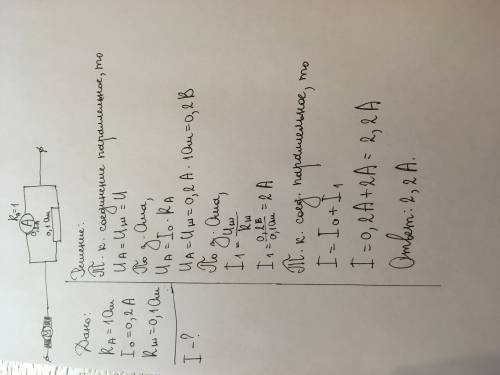 R₀=1
A
0,2A
0,1Ом
Дано:
R_A = 1Ом
I₀ = 0,2А
R_ш = 0,1Ом
I - ?
Решение:
Т. к. соединение параллельное, то
U_A = U_ш = U
По з. Ома,
U_A = I₀ · R_A
U_A = U_ш = 0,2А · 1Ом = 0,2В
По з. Ома,
I₁ = U_ш / R_ш
I₁ = 0,2В / 0,1Ом = 2А
Т. к. соед. параллельное, то
I = I₀ + I₁
I = 0,2А + 2А = 2,2А
Ответ: 2,2А.